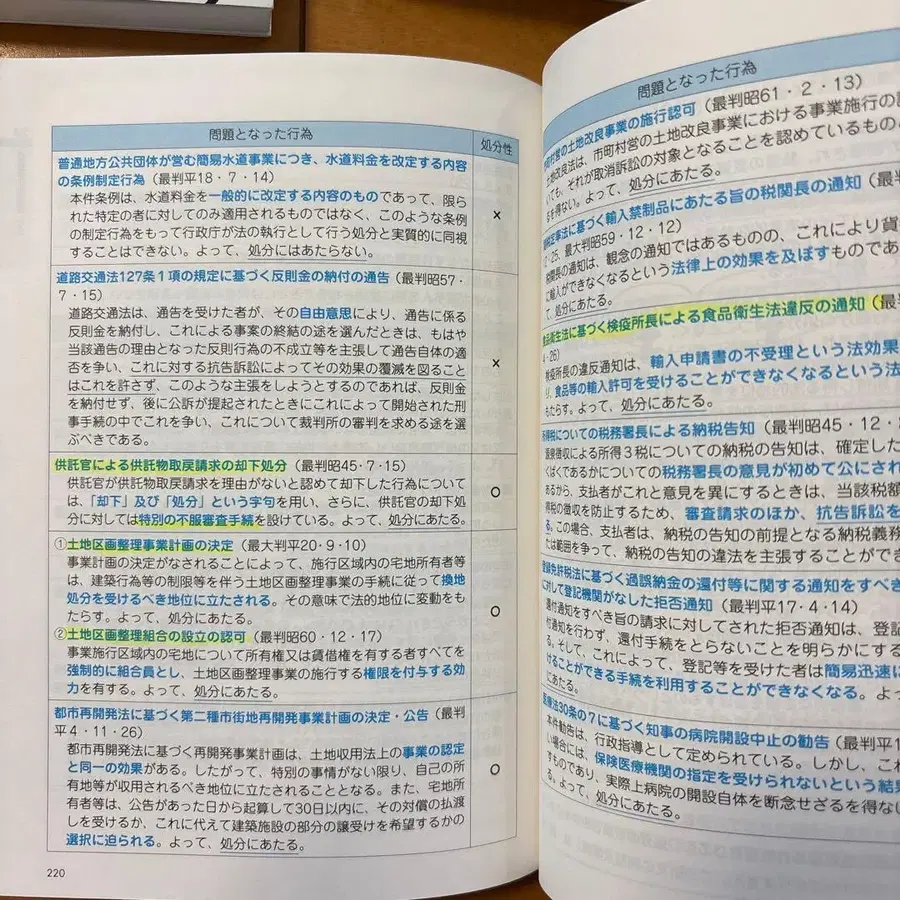 問題となった行為
処分性
普通地方公共団体が営む簡易水道事業につき、水道料金を改定する内容
の条例制定行為（最判平18・7・14）
本件条例は、水道料金を一般的に改定する内容のものであって、限ら
れた特定の者に対してのみ適用されるものではなく、このような条例
の制定行為をもって行政庁が法の執行として行う処分と実質的に同視
することはできない。よって、処分にはあたらない。
×
道路交通法127条1項の規定に基づく反則金の納付の通告（最判昭57・
7・15）
道路交通法は、通告を受けた者が、その自由意思により、通告に係る
反則金を納付し、これによる事案の終結の途を選んだときは、もはや
当該通告の理由となった反則行為の不成立等を主張して通告自体の適
否を争い、これに対する抗告訴訟によってその効果の覆滅を図ること
はこれを許さず、このような主張をしようとするのであれば、反則金
を納付せず、後に公訴が提起されたときにこれによって開始された刑
事手続の中でこれを争い、これについて裁判所の審判を求める途を選
ぶべきである。
×
供託官による供託物取戻請求の却下処分（最判昭45・7・15）
供託官が供託物取戻請求を理由がないと認めて却下した行為について
は、「却下」及び「処分」という字句を用い、さらに、供託官の却下処
分に対しては特別の不服審査手続を設けている。よって、処分にあたる。
○
①土地区画整理事業計画の決定（最大判平20・9・10）
事業計画の決定がなされることによって、施行区域内の宅地所有者等
は、建築行為等の制限等を伴う土地区画整理事業の手続に従って換地
処分を受けるべき地位に立たされる。その意味で法的地位に変動をも
たらす。よって、処分にあたる。
○
②土地区画整理組合の設立の認可（最判昭60・12・17）
事業施行区域内の宅地について所有権又は賃借権を有する者すべてを
強制的に組合員とし、土地区画整理事業の施行する権限を付与する効
力を有する。よって、処分にあたる。
都市再開発法に基づく第二種市街地再開発事業計画の決定・公告（最判
平4・11・26）
都市再開発法に基づく再開発事業計画は、土地収用法上の事業の認定
と同一の効果がある。したがって、特別の事情がない限り、自己の所
有地等が収用されるべき地位に立たされることとなる。また、宅地所
有者等は、公告があった日から起算して30日以内に、その対償の払渡
しを受けるか、これに代えて建築施設の部分の譲受けを希望するかの
選択に迫られる。よって、処分にあたる。
○
220
問題となった行為
町村営の土地改良事業の施行認可（最判昭61・2・13）
地改良法は、市町村営の土地改良事業における事業施行の
いても、それが取消訴訟の対象となることを認めているものと
るを得ない。よって、処分にあたる。
税定率法に基づく輸入禁制品にあたる旨の税関長の通知（最
・25、最大判昭59・12・12）
税関長の通知は、観念の通知ではあるものの、これにより貨
に輸入ができなくなるという法律上の効果を及ぼすものであ
て、処分にあたる。
食品衛生法に基づく検疫所長による食品衛生法違反の通知（最
4・26）
検疫所長の違反通知は、輸入申請書の不受理という法効果
り、食品等の輸入許可を受けることができなくなるという法
もたらす。よって、処分にあたる。
所得税についての税務署長による納税告知（最判昭45・12・2
源泉徴収による所得3税についての納税の告知は、確定した
くばくであるかについての税務署長の意見が初めて公にされ
あるから、支払者がこれと意見を異にするときは、当該税額
得税の徴収を防止するため、審査請求のほか、抗告訴訟を
る。この場合、支払者は、納税の告知の前提となる納税義務
たは範囲を争って、納税の告知の違法を主張することができ
登録免許税法に基づく過誤納金の還付等に関する通知をすべき
に対して登記機関がなした拒否通知（最判平17・4・14）
還付通知をすべき旨の請求に対してされた拒否通知は、登記
付通知を行わず、還付手続をとらないことを明らかにする
る。そして、これによって、登記等を受けた者は簡易迅速に
けることができる手続を利用することができなくなる。よっ
にあたる。
医療法30条の7に基づく知事の病院開設中止の勧告（最判平1
本件勧告は、行政指導として定められている。しかし、これ
い場合には、保険医療機関の指定を受けられないという結果
すものであり、実際上病院の開設自体を断念せざるを得な
る。よって、処分にあたる。